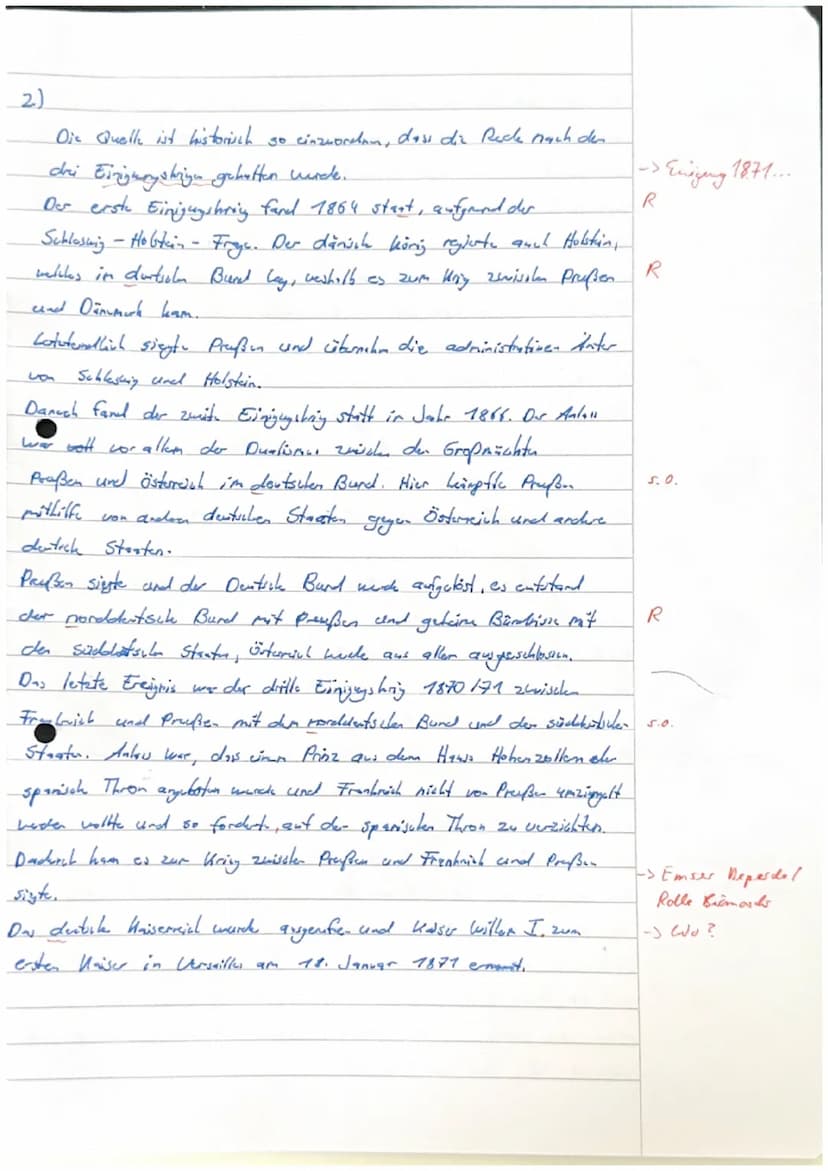 2)
Die Quelle ist historisch so einzuordnen, dass die Rede nach den
drei Einigungskriegen gehalten wurde.
-> Einigung 1871...
Der erste Einigungskrieg fand 1864 statt, aufgrund der
R
Schleswig-Holstein-Frage. Der dänische König regierte auch Holstein,
welches im deutschen Bund lag, weshalb es zum Krieg zwischen Preußen
R
und Dänemark kam.
Letztendlich siegte Preußen und übernahm die administrativen Ämter
von Schleswig und Holstein.
Danach fand der zweite Einigungskrieg statt im Jahr 1866. Der Anlass
war vor allem der Dualismus zwischen den Großmächten
Preußen und Österreich im deutschen Bund. Hier kämpfte Preußen
s.o.
mithilfe von anderen deutschen Staaten gegen Österreich und andere
deutsche Staaten.
Preußen siegte und der Deutsche Bund wurde aufgelöst, es entstand
der norddeutsche Bund mit Preußen und geheime Bündnisse mit
R
den süddeutschen Staaten, Österreich wurde aus allem ausgeschlossen.
Das letzte Ereignis war der dritte Einigungskrieg 1870/71 zwischen
Frankreich und Preußen mit dem norddeutschen Bund und den süddeutschen
s.o.
Staaten. Anlass war, dass einem Prinz aus dem Haus Hohenzollern der
spanische Thron angeboten wurde und Frankreich nicht von Preußen umzingelt
werden wollte und so forderte, auf den spanischen Thron zu verzichten.
Dadurch kam es zum Krieg zwischen Preußen und Frankreich und Preußen
-> Emser Depesche/
siegte.
Rolle Bismarcks
Das deutsche Kaiserreich wurde ausgerufen und Kaiser Wilhelm I. zum
-> Wo?
ersten Kaiser in Versailles am 18. Januar 1871 ernannt.